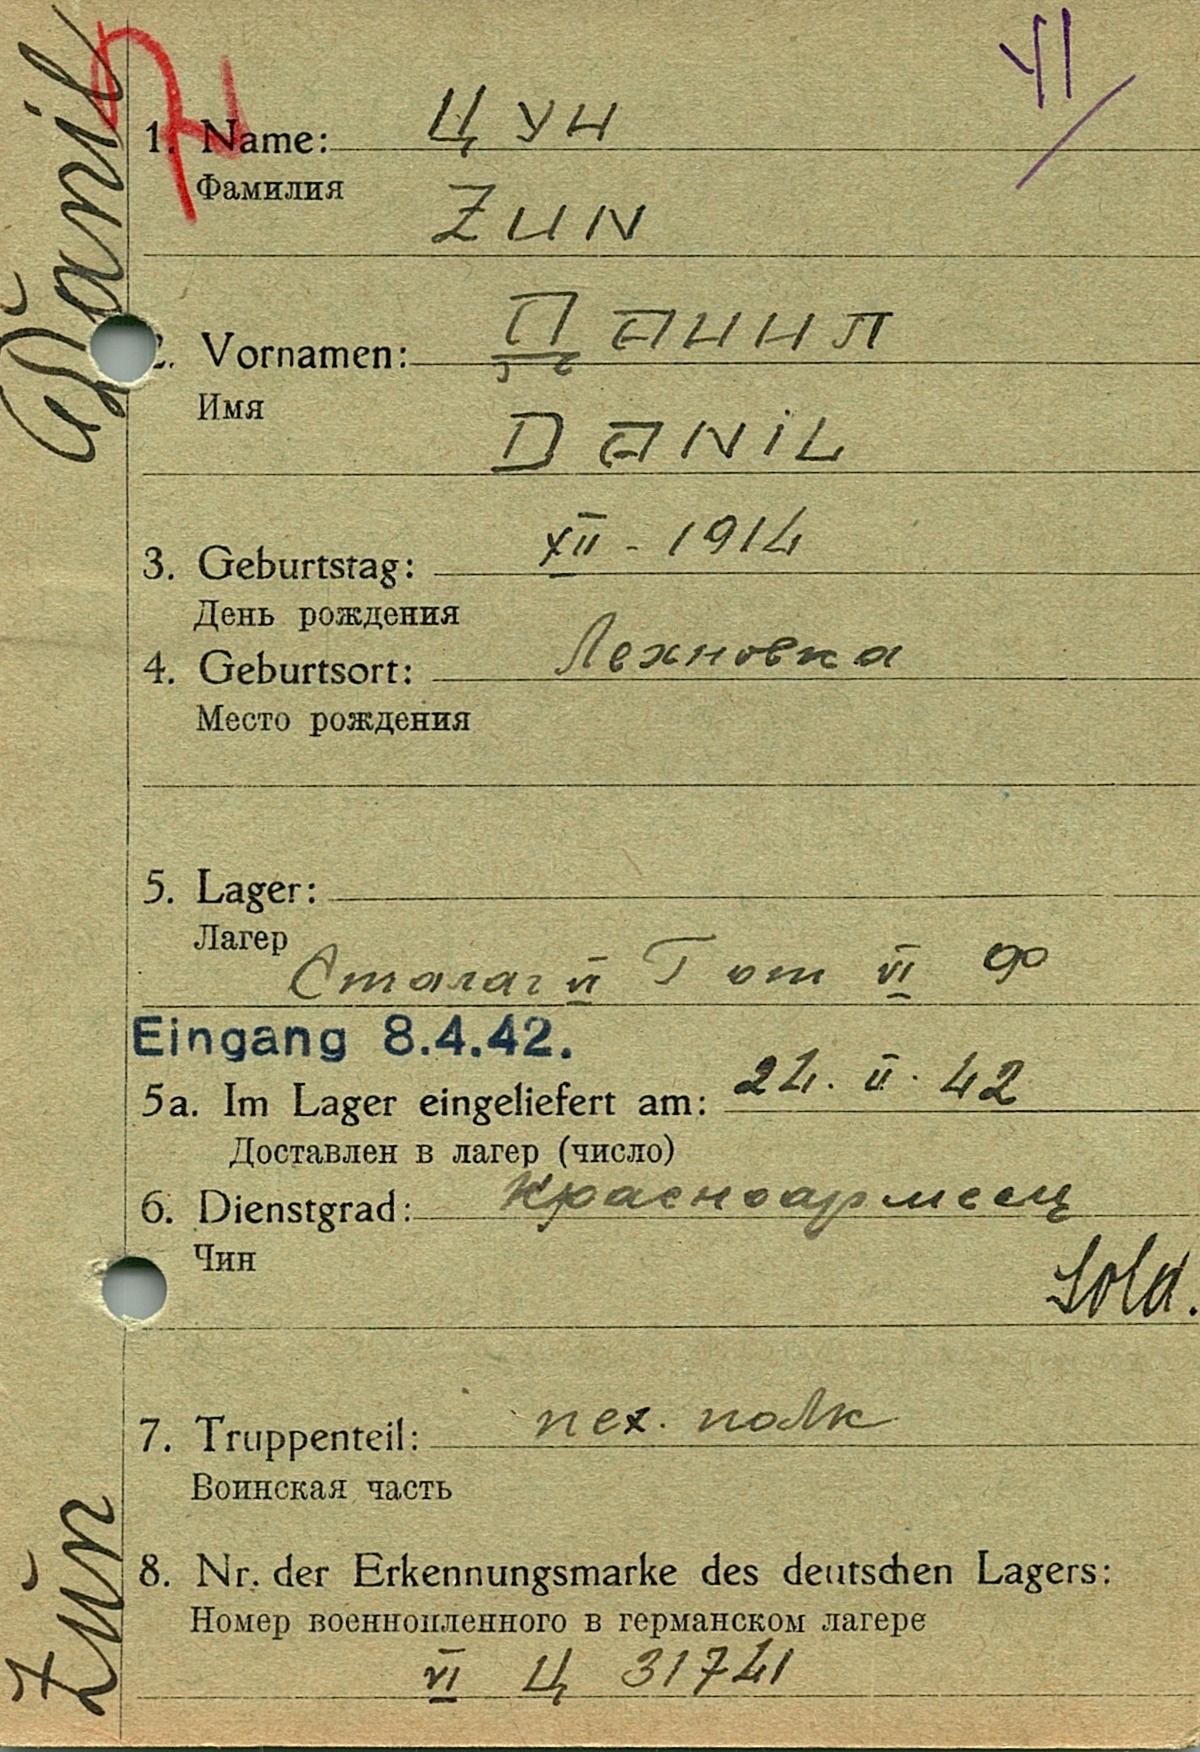 Žun Danil
ZI
1. Name: ЦУН
Фамилия
ZUN
2. Vornamen: ДАНИЛ
Имя
DANIL
3. Geburtstag: XII - 1914
День рождения
4. Geburtsort: Лехновка
Место рождения
5. Lager:
Лагер
Сталаг VI Г от VI Ф
Eingang 8.4.42.
5a. Im Lager eingeliefert am: 24. II. 42
Доставлен в лагер (число)
6. Dienstgrad: Красноармеец
Чин
Sold.
7. Truppenteil: пех. полк
Воинская часть
8. Nr. der Erkennungsmarke des deutschen Lagers:
Номер военнопленного в германском лагере
VI Ц 31741